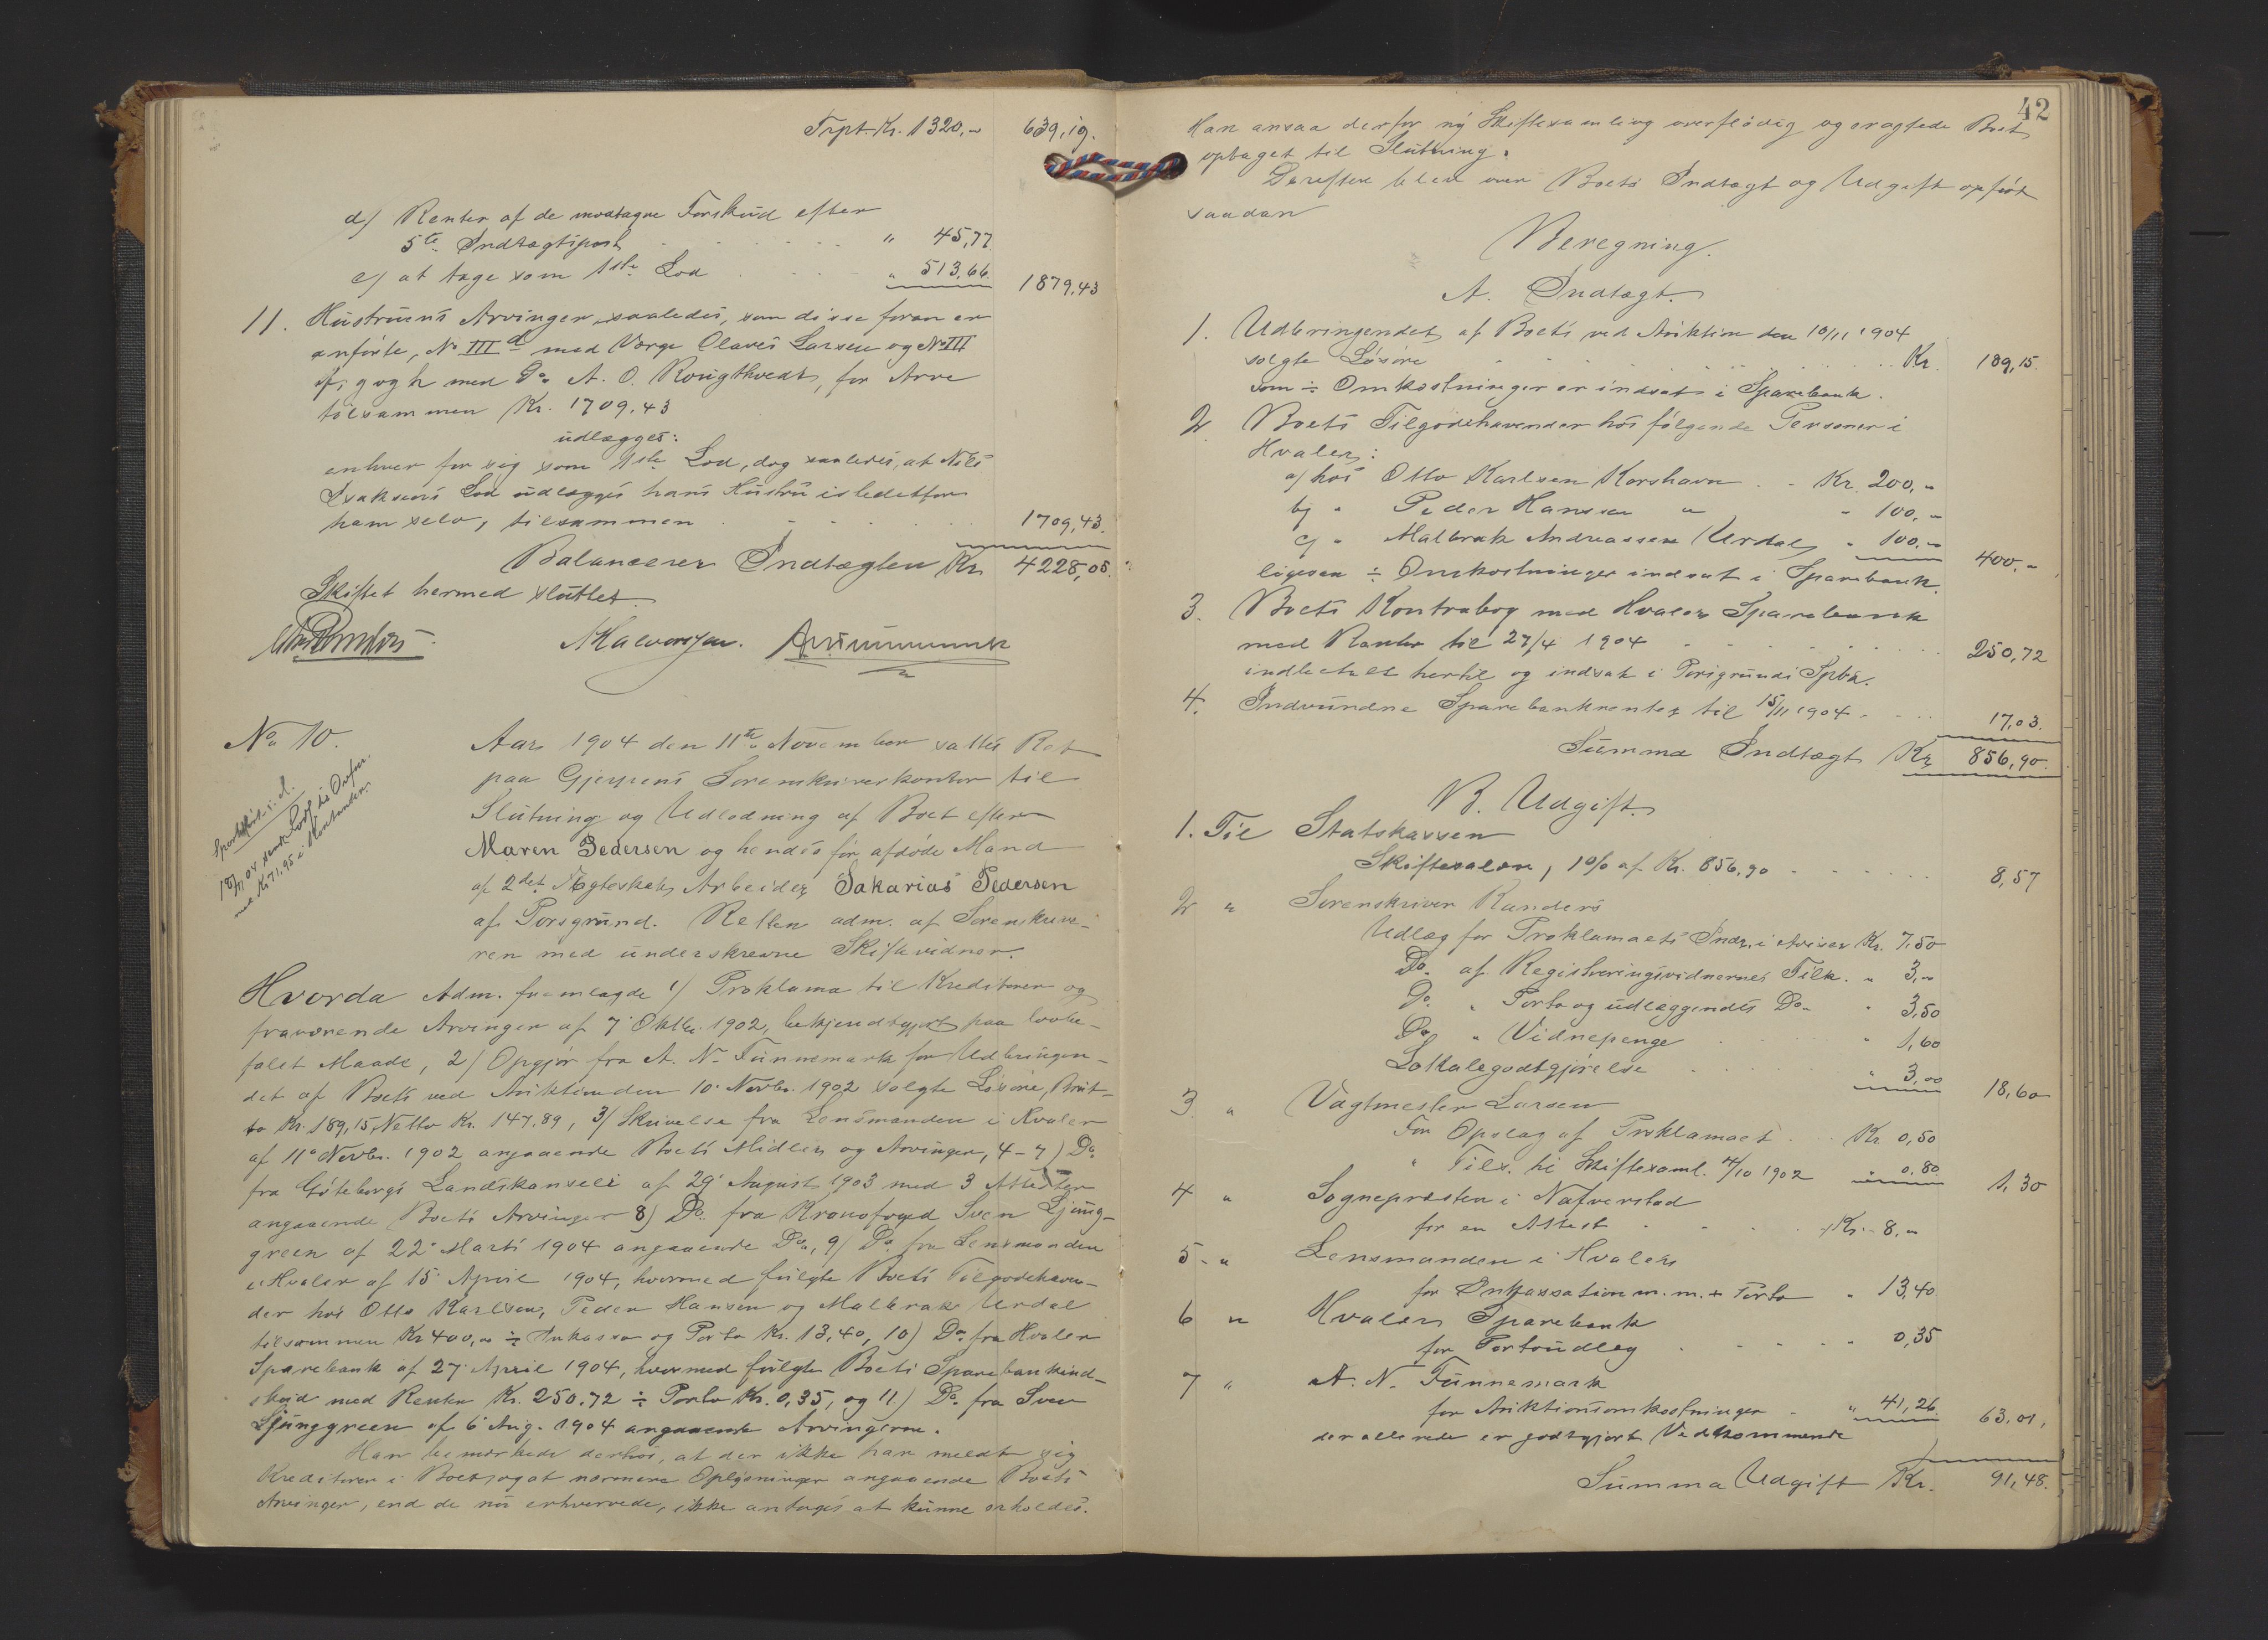 Trpt Kr. 1320,- 639,19.
d) Renter af de modtagne Forskud efter
5te Indtægtspost " 45,77
e) at tage som 1ste Lod " 513,66. 1879,43
11. Hustruens Arvinger, saaledes, som disse foran er
anførte, No III d med Værge Olaves Larsen og No III
f, g og h med Do A. O. Rougthvedt, for Arve
tilsammen Kr. 1709.43
udlægges:
enhver for sig som 1ste Lod, dog saaledes, at Nils
Isaksens Lod udlægges hans Hustru istedetfor
ham selv, tilsammen 1709,43.
Balancerer Indtægten Kr. 4228,05.
Skiftet hermed sluttet.
No 10.
Aar 1904 den 11te November sattes Ret
paa Gjerpens Sorenskriverkontor til
Slutning og Udlodning af Boet efter
Maren Pedersen og hendes før afdøde Mand
af 2det Ægteskab, Arbeider Sakarias Pedersen
af Porsgrund. Retten adm. af Sorenskrive-
ren med underskrevne Skiftevidner.
Hvorda Adm. fremlagde 1) Proklama til Kreditorer og
fraværende Arvinger af 7 Oktbr. 1902, bekjendtgjort paa lovbe-
falet Maade, 2) Opgjør fra A. N. Funnemark for Udbringen-
det af Boets ved Auktion den 10 Novbr. 1902 solgte Løsøre, Brut-
to Kr. 189,15, Netto Kr. 147,89, 3) Skrivelse fra Lensmanden i Hvaler
af 11 Novbr. 1902 angaaende Boets Midler og Arvinger, 4-7) Do
fra Göteborgs Landskanseli af 29 August 1903 med 3 Attester
angaaende Boets Arvinger 8) Do fra Kronofoged Sven Ljung-
green af 22 Marts 1904 angaaende Do, 9) Do fra Lensmanden
i Hvaler af 15 April 1904, hvormed fulgte Boets Tilgodehaven-
der hos Otto Karlsen, Peder Hansen og Malbrak Urdal
tilsammen Kr 400,- ÷ Inkasso og Porto Kr. 13,40, 10) Do fra Hvaler
Sparebank af 27 April 1904, hvormed fulgte Boets Sparebankind-
skud med Renter Kr. 250.72 ÷ Porto Kr. 0,35, og 11) Do fra Sven
Ljunggreen af 6 Aug. 1904 angaaende Arvingerne.
Han bemærkede derhos, at der ikke har meldt sig
Kreditorer i Boet, og at nærmere Oplysninger angaaende Boets
Arvinger, end de nu erhvervede, ikke antages at kunne erholdes.
42
Han ansaa derfor ny Skiftesamling overflødig og eragtede Boet
optaget til Slutning.
Derefter blev over Boets Indtægt og Udgift opført
saadan
Beregning.
A. Indtægt.
1. Udbringendet af Boets ved Auktion den 10/11 1904
solgte Løsøre Kr. 189,15.
som ÷ Omkostninger er indsat i Sparebank.
2. Boets Tilgodehavender hos følgende Personer i
Hvaler:
a) hos Otto Karlsen Korshavn Kr. 200,-
b) " Peder Hansen " " 100,-
c) " Malbrak Andreassen Urdal " 100.- 400.-
ligesaa ÷ Omkostninger indsat i Sparebank.
3. Boets Kontrabog med Hvaler Sparebank
med Renter til 27/4 1904 250,72
indbetalt hertil og indsat i Porsgrunds Spbk.
4. Indvundne Sparebankrenter til 15/11 1904 17,03.
Summa Indtægt Kr. 856,90.
B. Udgift.
1. Til Statskassen
Skiftesalær, 1% af Kr. 856,90 8,57
2 " Sorenskriver Randers
Udlæg for Proklamaets Indr. i Aviser Kr. 7,50
Do. af Registreringsvidnernes Tilk. " 3,-
Do. " Porto og udlæggendes Do. " 3,50
Do. " Vidnepenge " 1,60
Lokalegodtgjørelse " 3,00 18,60
3. " Vagtmester Larsen
For Opslag af Proklamaet Kr 0,50
" Tils. til Skiftesaml. 7/10 1902 " 0.80 1,30
4 " Sognepresten i Nafverstad
for en Attest Kr. 8,-
5 " Lensmanden i Hvaler
for Inkassation m.m. + Porto " 13,40
6 " Hvalers Sparebank
for Portoudlæg " 0,35
7 " A. N. Funnemark
for Auktionsomkostninger " 41,26 63,01,
der allerede er godtgjort Vedkommende
Summa Udgift Kr. 91,48.